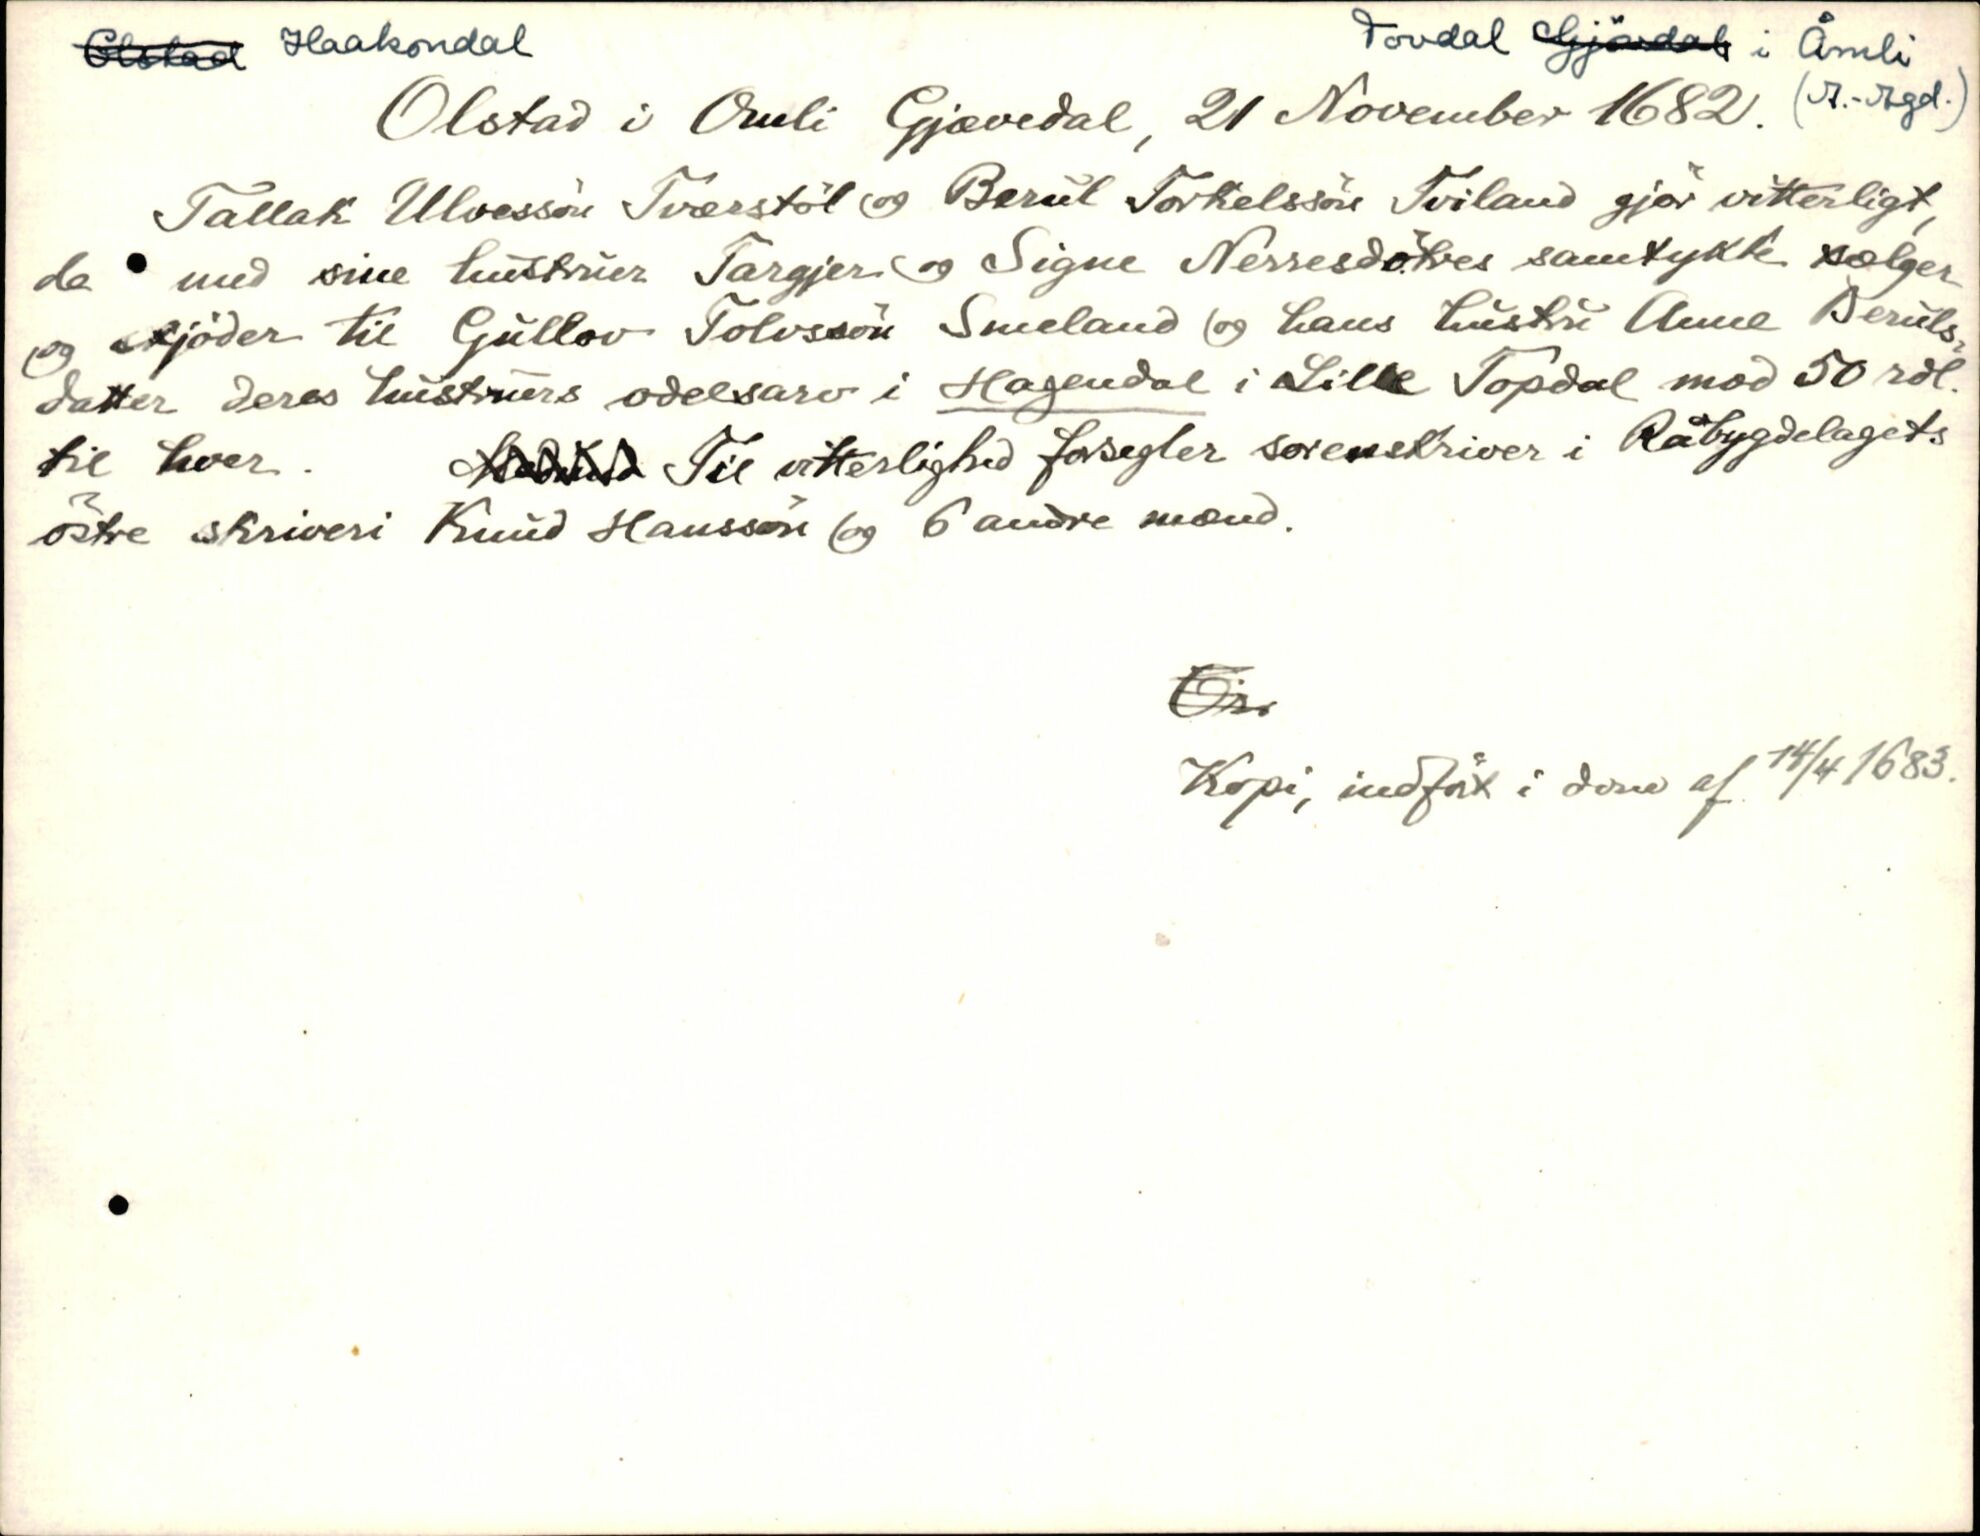 Olstad Haakondal Tovdal Gjävdal i Åmli
Olstad i Omli Gjævedal, 21 November 1682. (A.-Agd.)
Tallak Ulvessön Tværstöl og Berul Torkelssön Tviland gjör vitterligt,
de med sine hustruer Targjer og Signe Nerresdötres samtykke sælger
og skjöder til Gullov Tolvssön Smeland og hans hustru Anne Beruls-
datter deres hustruers odelsarv i Hagendal i Lille Topdal mod 50 rdl.
til hver. Til vitterlighed forsegler sorenskriver i Råbygdelagets
östre skriveri Knud Hanssön og 6 andre mænd.
Or.
Kopi, indfört i dom af 14/4 1683.